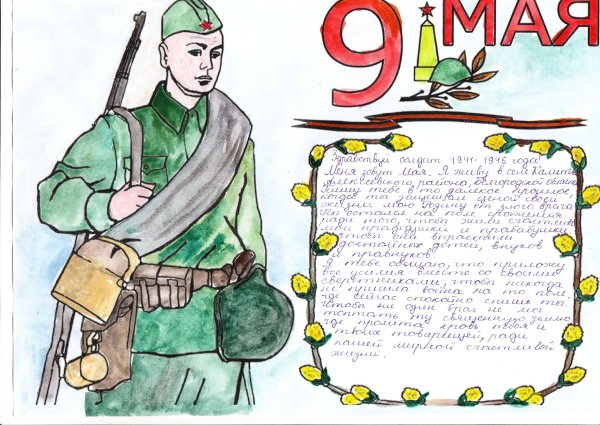 9 МАЯ
Здравствуй солдат 1941-1945 года!
Меня зовут Мая. Я живу в селе Калитва
Алексеевского района, Белгородской области.
Пишу тебе в то далёкое прошлое,
когда ты защищал ценой своей
жизни мою Родину от злого врага.
Ты остался на поле сражения
ради того, чтобы жили счастливо
мои прадедушки и прабабушки,
чтобы они вырастили
достойных детей, внуков
и правнуков.
Я тебе обещаю, что приложу
все усилия вместе со своими
сверстниками, чтобы никогда
не пришла война на то поле,
где сейчас спокойно спишь ты.
Чтоб ни один враг не мог
топтать ту священную землю
где пролита кровь твоя и
твоих товарищей, ради
нашей мирной счастливой
жизни.